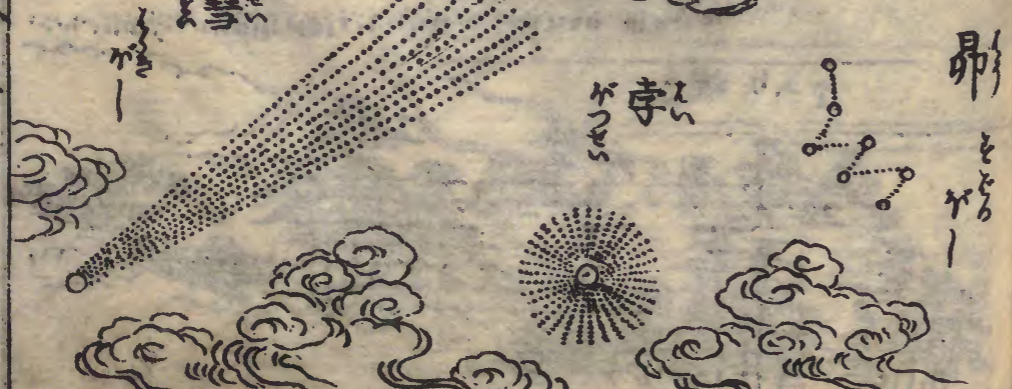 昴
すばるぼし
孛
はい
ぼつせい
彗
はゝきぼし